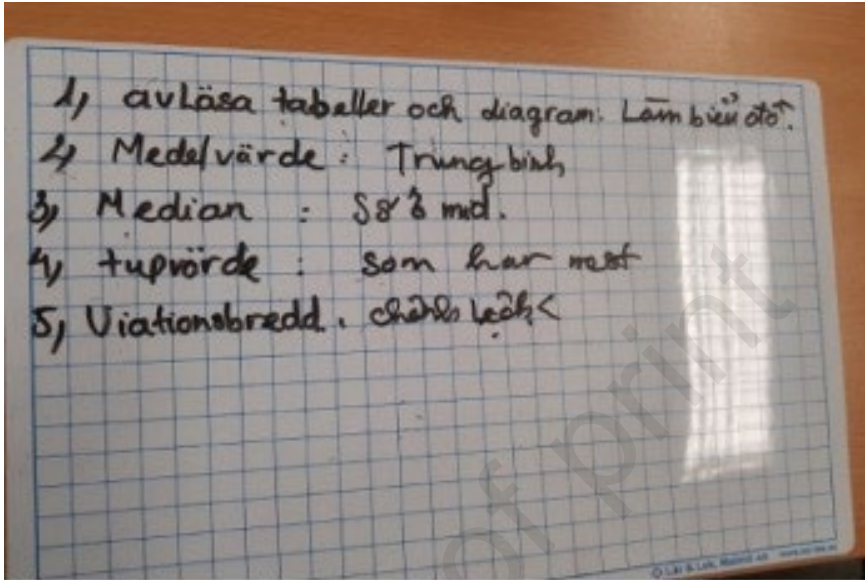 1, avläsa tabeller och diagram: Làm biểu đồ.
2, Medelvärde : Trung bình
3, Median : Số ở mid.
4, tupvärde : som har mest
5, Viationsbredd. chênh lệch <
of print